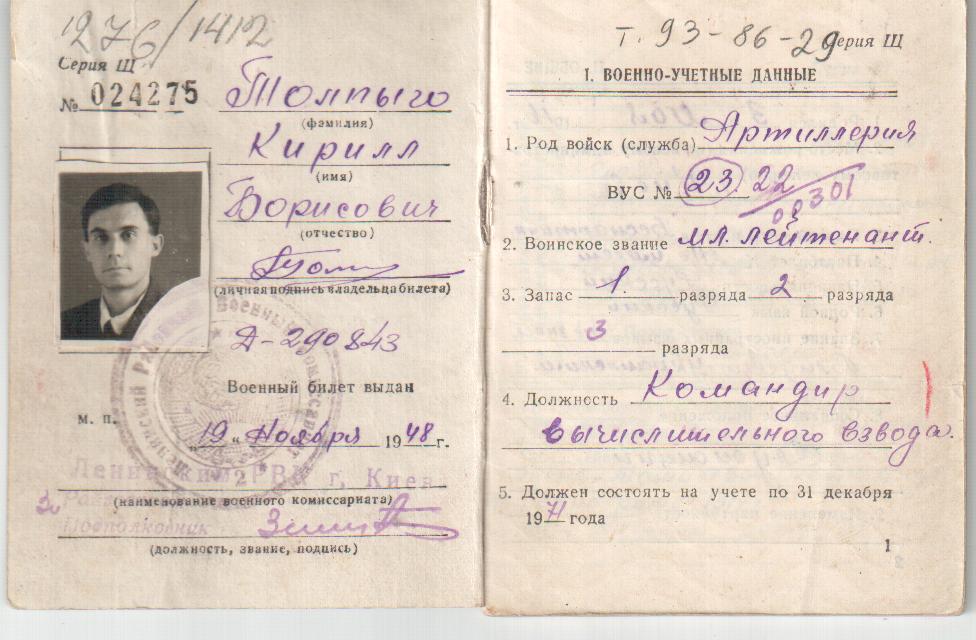 1276/1412
Серия Щ
№ 024275
Толпыго
(фамилия)
Кирилл
(имя)
Борисович
(отчество)
(личная подпись владельца билета)
Д-290843
Военный билет выдан
м. п.
„19“ Ноября 1948 г.
Ленинским РВК г. Киев
(наименование военного комиссариата)
Подполковник
(должность, звание, подпись)
Т. 93-86-29
Серия Щ
I. ВОЕННО-УЧЕТНЫЕ ДАННЫЕ
1. Род войск (служба) Артиллерия
ВУС № 23 22
00301
2. Воинское звание мл. лейтенант.
3. Запас 1. разряда 2 разряда
3 разряда
4. Должность Командир
вычислительного взвода.
5. Должен состоять на учете по 31 декабря
1971 года
1